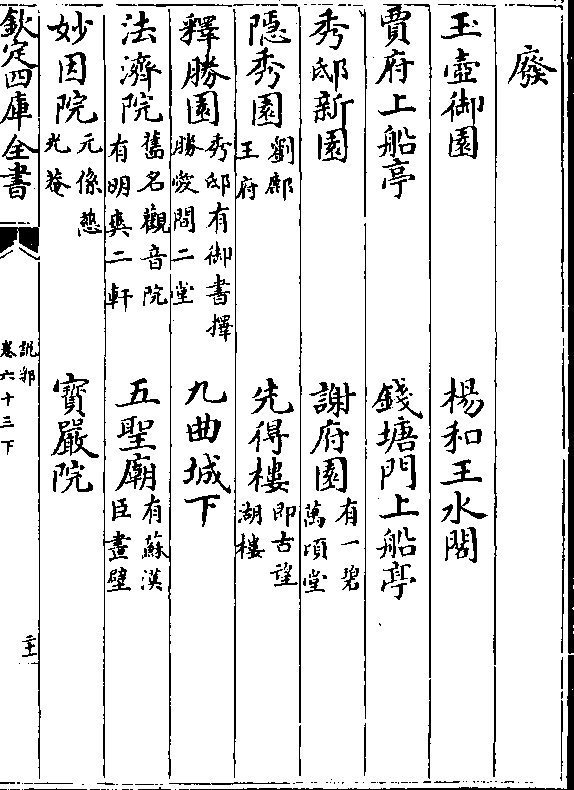 廢
玉壺御園　楊和王水閣
賈府上船亭　錢塘門上船亭
秀邸新園　謝府園有一碧萬頃堂
隱秀園劉鄜王府　先得樓即古望湖樓
釋勝園秀邸有御書擇勝愛閒二堂　九曲城下
法濟院舊名觀音院有明奭二軒　五聖廟有蘇漢臣畫壁
妙因院元係慈光菴　寶嚴院
欽定四庫全書　說郛卷六十三下　二十一